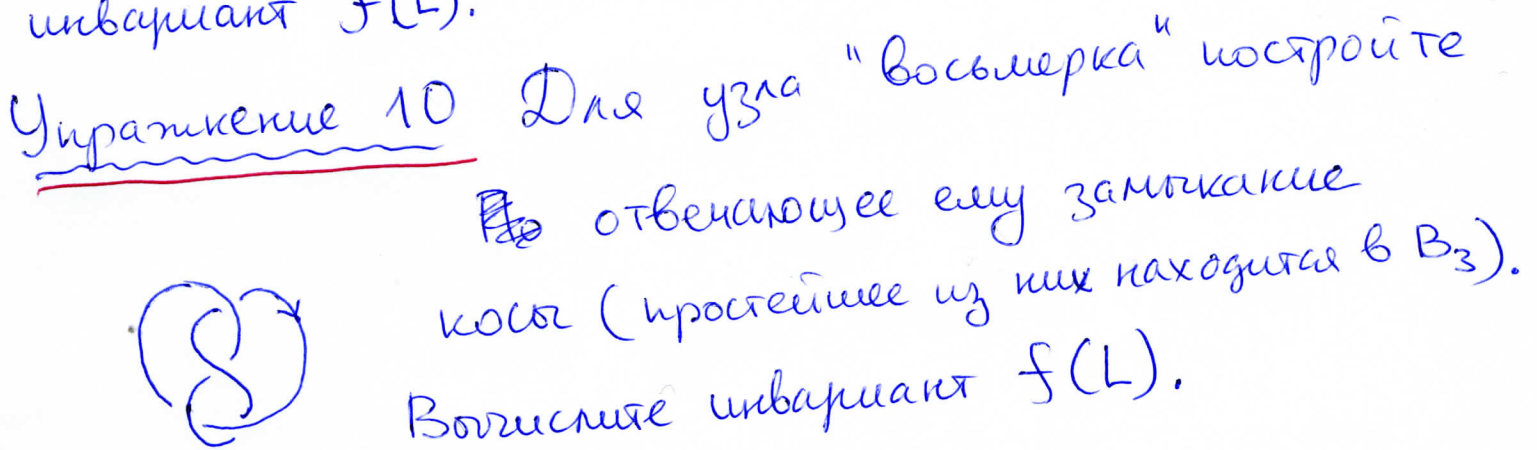 инвариант f(L).
Упражнение 10 Для узла "восьмерка" постройте
отвечающее ему замыкание
косы (простейшее из них находится в B₃).
Вычислите инвариант f(L).